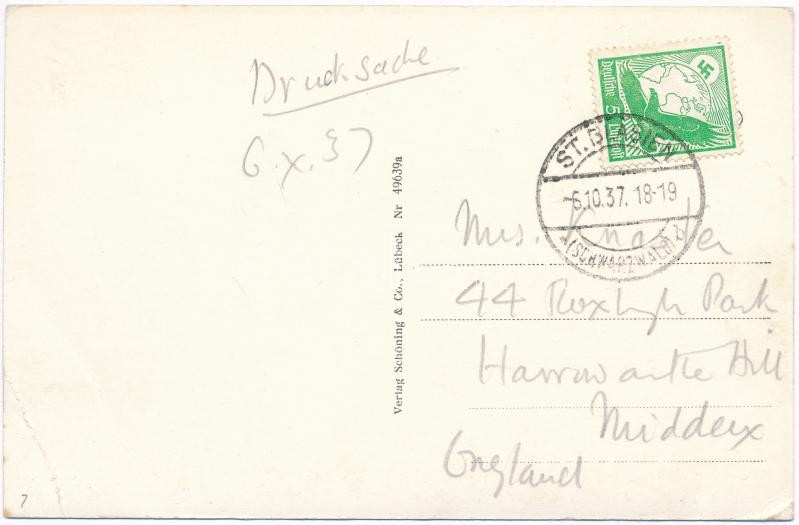 Drucksache
6.X.37
Deutsche 5 Luftpost
ST. BLASIEN
-6.10.37. 18-19
(SCHWARZWALD) b
Verlag Schöning & Co., Lübeck Nr 49639a
Mrs. Knatter
44 Roxbgh Park
Harrow on the Hill
Middlesex
England
7